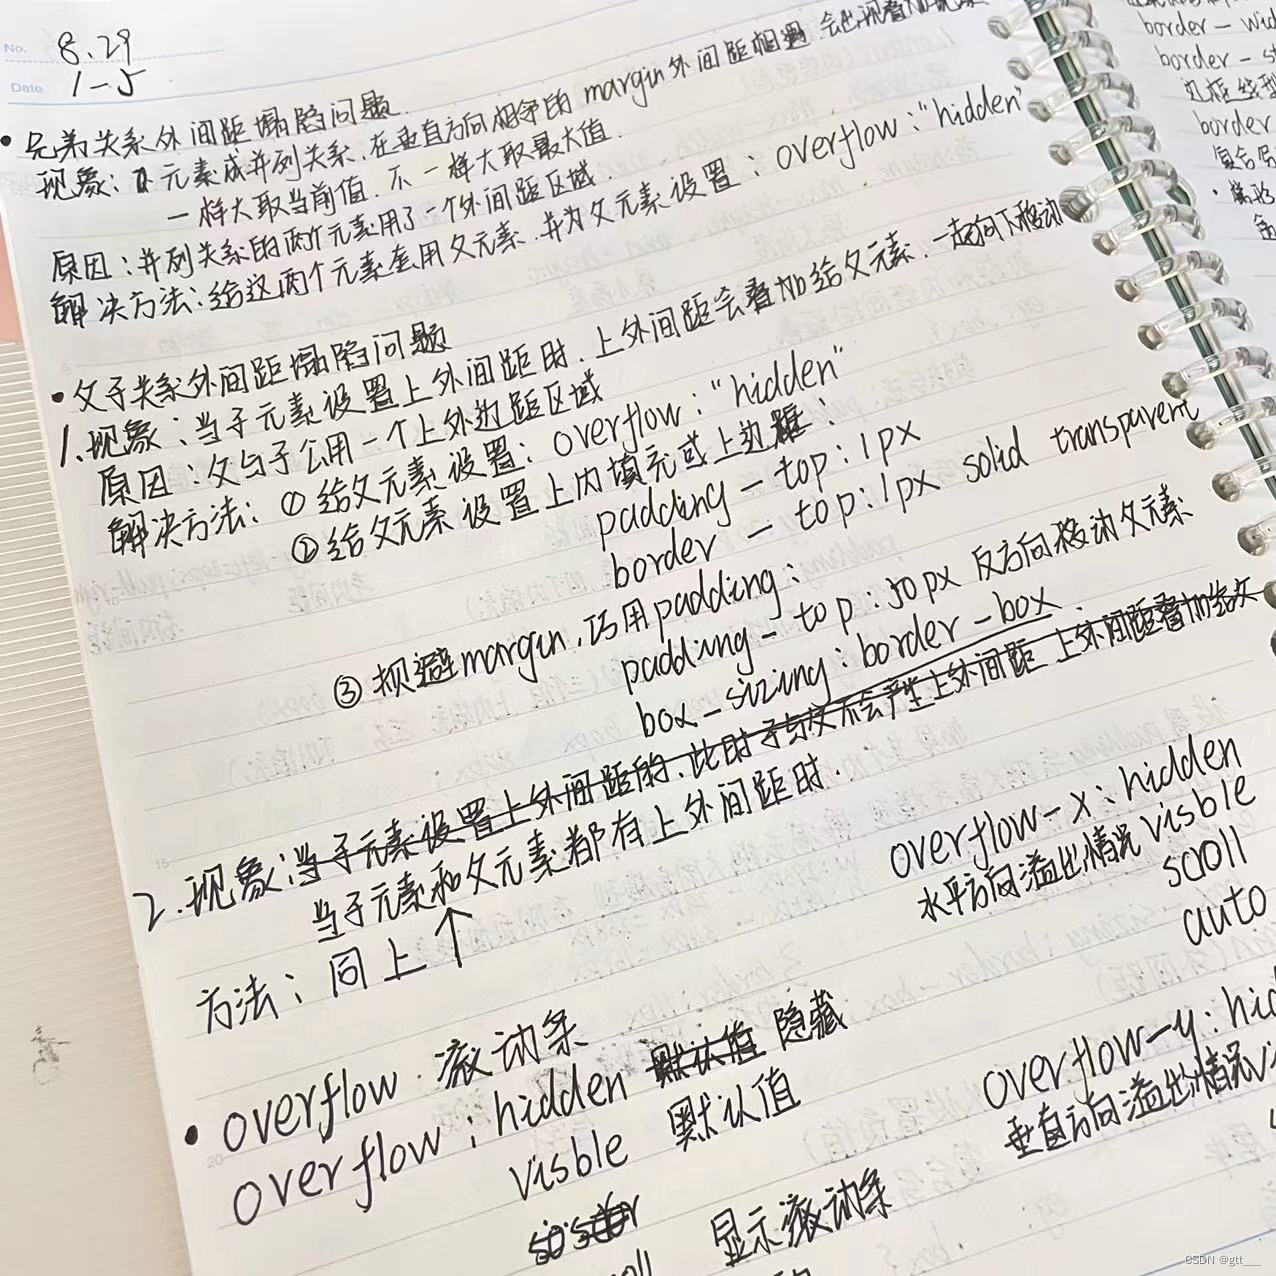 No.
8.29
Date
1-5
• 兄弟关系外间距塌陷问题.
现象: 元素成并列关系,在垂直方向相争的margin外间距相遇 会出现叠加现象
一样大取当前值.不一样大取最大值.
原因:并列关系的两个元素用了一个外间距区域.
解决方法:给这两个元素套用父元素.并为父元素设置:overflow:"hidden"
• 父子关系外间距塌陷问题
1.现象:当子元素设置上外间距时.上外间距会叠加给父元素.一起向下移动
原因:父与子公用一个上外边距区域
解决方法:①给父元素设置:overflow:"hidden"
②给父元素设置上内填充或上边框:
padding-top:1px
border-top:1px solid transparent
③规避margin,巧用padding:
padding-top:50px 反方向移动父元素
box-sizing:border-box.
2.现象:当子元素设置上外间距的.此时子与父不会产生上外间距 上外间距叠加给父
当子元素和父元素都有上外间距时.
方法:同上↑
overflow-x:hidden
水平方向溢出情况 visble
scroll
auto
• overflow.滚动条
overflow:hidden 默认值 隐藏
visble 默认值
显示滚动条
overflow-y:hid
垂直方向溢出情况
border-wid
border-s
边框线型
border
CSDN @gtt___